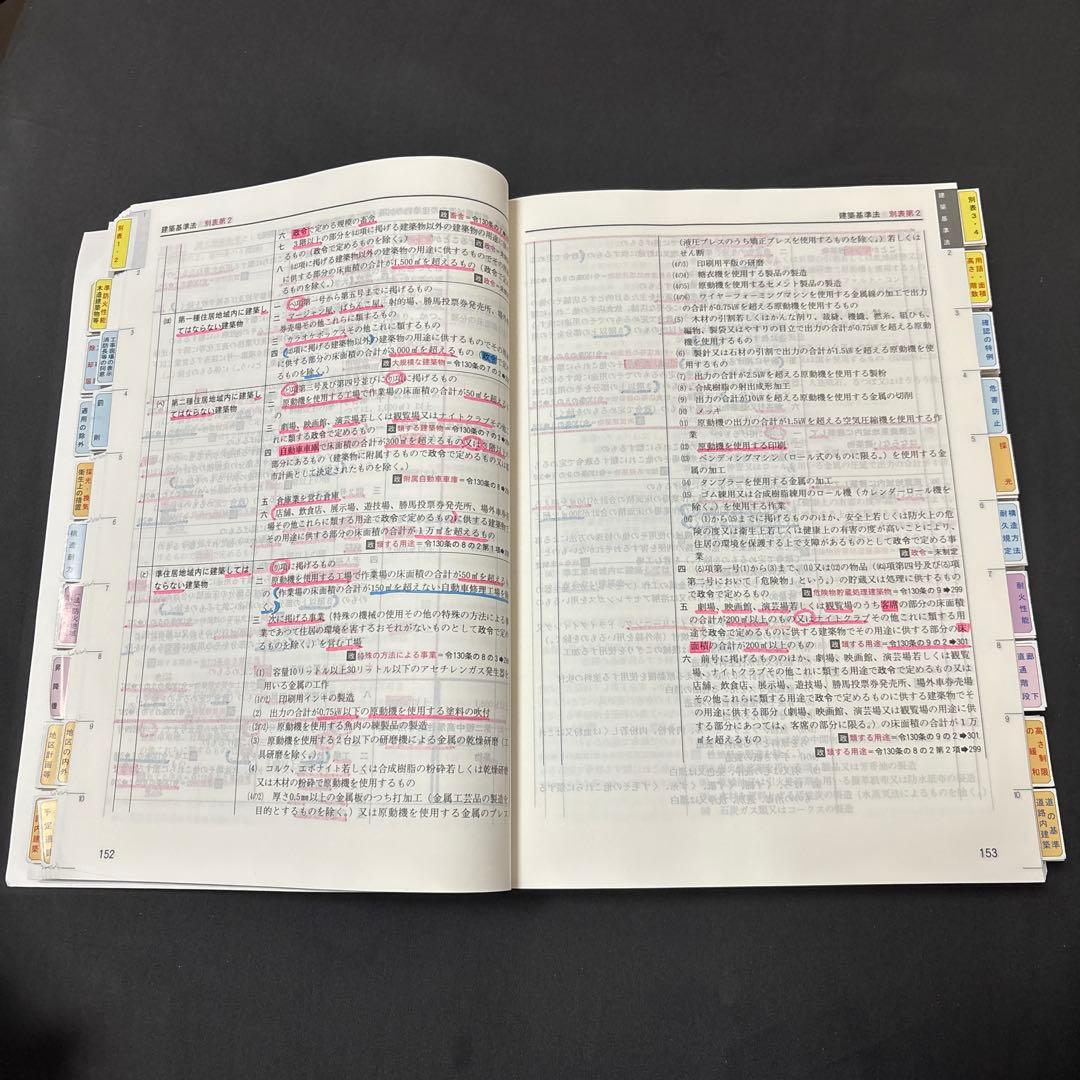 建築基準法 別表第2
政 畜舎=令130条の
六 政令で定める規模の畜舎
七 3階以上の部分を(に)項に掲げる建築物以外の建築物の用途に供す
るもの(政令で定めるものを除く。)
八 (に)項に掲げる建築物以外の建築物の用途に供するものでその用途
に供する部分の床面積の合計が1,500㎡を超えるもの(政令で定め
るものを除く。)
(ほ) 第一種住居地域内に建築し
てはならない建築物
一 (へ)項第一号から第五号までに掲げるもの
二 マージャン屋、ぱちんこ屋、射的場、勝馬投票券発売所、場外
券売場その他これらに類するもの
三 カラオケボックスその他これに類するもの
四 (に)項に掲げる建築物以外の建築物の用途に供するものでその用
に供する部分の床面積の合計が3,000㎡を超えるもの(政令
るものを除く。)
政 大規模な建築物=令130条の7の2
(へ) 第二種住居地域内に建築し
てはならない建築物
一 (と)項第三号及び第四号並びに(り)項に掲げるもの
二 原動機を使用する工場で作業場の床面積の合計が50㎡を超える
三 劇場、映画館、演芸場若しくは観覧場又はナイトクラブその
れに類する政令で定めるもの
政 類する建築物=令130条の7の
四 自動車車庫で床面積の合計が300㎡を超えるもの又は3階以上
部分にあるもの(建築物に附属するもので政令で定めるもの又は
市計画として決定されたものを除く。)
政 附属自動車車庫=令130条の8
五 倉庫業を営む倉庫
六 店舗、飲食店、展示場、遊技場、勝馬投票券発売所、場外車券
場その他これらに類する用途で政令で定めるものに供する建築物
の用途に供する部分の床面積の合計が1万㎡を超えるもの
政 類する用途=令130条の8の2第1項
(と) 準住居地域内に建築しては
ならない建築物
一 (り)項に掲げるもの
二 原動機を使用する工場で作業場の床面積の合計が50㎡を超える
(作業場の床面積の合計が150㎡を超えない自動車修理工場を除
三 次に掲げる事業(特殊の機械の使用その他の特殊の方法による事
業であつて住居の環境を害するおそれがないものとして政令で定め
るものを除く。)を営む工場
政 特殊の方法による事業=令130条の8の3
(1) 容量10リットル以上30リットル以下のアセチレンガス発生器を
用いる金属の工作
(1の2) 印刷用インキの製造
(2) 出力の合計が0.75㎾以下の原動機を使用する塗料の吹付
(2の2) 原動機を使用する魚肉の練製品の製造
(3) 原動機を使用する2台以下の研磨機による金属の乾燥研磨(工
具研磨を除く。)
(4) コルク、エボナイト若しくは合成樹脂の粉砕若しくは乾燥研磨
又は木材の粉砕で原動機を使用するもの
(4の2) 厚さ0.5㎜以上の金属板のつち打加工(金属工芸品の製造を
目的とするものを除く。)又は原動機を使用する金属のプレス
152
建築基準法 別表第2
(液圧プレスのうち矯正プレスを使用するものを除く。)若しくは
せん断
(4の3) 印刷用平版の研磨
(4の4) 糖衣機を使用する製品の製造
(4の5) 原動機を使用するセメント製品の製造
(4の6) ワイヤーフォーミングマシンを使用する金属線の加工で出力
の合計が0.75㎾を超える原動機を使用するもの
(5) 木材の引割若しくはかんな削り、裁縫、機織、撚糸、組ひも、
編物、製袋又はやすりの目立で出力の合計が0.75㎾を超える原動
機を使用するもの
(6) 製針又は石材の引割で出力の合計が1.5㎾を超える原動機を使
用するもの
(7) 出力の合計が2.5㎾を超える原動機を使用する製粉
(8) 合成樹脂の射出成形加工
(9) 出力の合計が10㎾を超える原動機を使用する金属の切削
(10) メッキ
(11) 原動機の出力の合計が1.5㎾を超える空気圧縮機を使用する作
業
(12) 原動機を使用する印刷
(13) ベンディングマシン(ロール式のものに限る。)を使用する金
属の加工
(14) タンブラーを使用する金属の加工
(15) ゴム練用又は合成樹脂練用のロール機(カレンダーロール機を
除く。)を使用する作業
(16) (1)から(15)までに掲げるもののほか、安全上若しくは防火上の危
険の度又は衛生上若しくは健康上の有害の度が高いことにより、
住居の環境を保護する上で支障があるものとして政令で定める事
業
政 政令=未制定
四 (る)項第一号(1)から(3)まで、(11)又は(12)の物品((ぬ)項第四号及び(る)項
第二号において「危険物」という。)の貯蔵又は処理に供するもの
で政令で定めるもの
政 危険物貯蔵処理建築物=令130条の9➡299
五 劇場、映画館、演芸場若しくは観覧場のうち客席の部分の床面積
の合計が200㎡以上のもの又はナイトクラブその他これに類する用
途で政令で定めるものに供する建築物でその用途に供する部分の床
面積の合計が200㎡以上のもの
政 類する用途=令130条の9の2➡301
六 前号に掲げるもののほか、劇場、映画館、演芸場若しくは観覧
場、ナイトクラブその他これに類する用途で政令で定めるもの又は
店舗、飲食店、展示場、遊技場、勝馬投票券発売所、場外車券売場
その他これらに類する用途で政令で定めるものに供する建築物でそ
の用途に供する部分(劇場、映画館、演芸場又は観覧場の用途に供
する部分にあつては、客席の部分に限る。)の床面積の合計が1万
㎡を超えるもの
政 類する用途=令130条の9の2➡301
政 類する用途=令130条の8の2第2項➡299
153
別表1・2
準防火性能
木造建築物等
除却届
工事現場の表示
消防長等の同意
適用の除外
罰則
採光・換気
衛生上の措置
構造耐力
昇降機
地区計画等
地区の内外
予定道路
建築基準法
別表3・4
用語・面積
高さ・階数
確認の特例
危害防止
採光
構造方法
耐久規定
耐火性能
廊下
直通階段
高さ制限
の緩和
道の基準
道路内建築